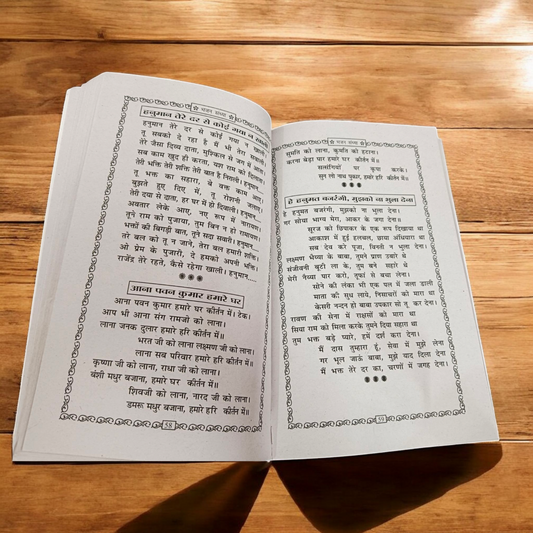 भजन संध्या
हनुमान तेरे दर से कोई गया न खाली
हनुमान तेरे दर से कोई गया न खाली।
तू सबको दे रहा है मैं भी तेरा सवाली।
तेरे जैसा दिव्य दाता, मुश्किल से जग में आता।
सब काम खुद ही करता, यश राम को दिलाता।
तेरी भक्ति तेरी शक्ति तेरी बात है निराली। हनुमान
तू भक्त का सहारा, बे वक्त काम आए।
बुझते हुए दिए में, तू रोशनी जलाए।
तेरी दया से दाता, हर घर में हो दिवाली। हनुमान
अवतार लेके आए, नए रूप में नारायण।
तूने राम को पुजाया, तुम बिन न हो रामायण।
भक्तों की बिगड़ी बात, तूने सदा सवारी। हनुमान
तेरे बल को तू न जाने, तेरा बल हमारी शक्ति।
ओ प्रेम के पुजारी, दे हमको अपनी भक्ति।
राजेंद्र तेरे रहते, कैसे रहेगा खाली। हनुमान
आना पवन कुमार हमारे घर
आना पवन कुमार हमारे घर कीर्तन में। टेक।
आप भी आना संग रामजी को लाना।
लाना जनक दुलार हमारे हरि कीर्तन में॥
भरत जी को लाना लक्ष्मण जी को लाना।
लाना सब परिवार हमारे हरि कीर्तन में॥
कृष्णा जी को लाना, राधा जी को लाना।
बंशी मधुर बजाना, हमारे घर कीर्तन में॥
शिवजी को लाना, नारद जी को लाना।
डमरू मधुर बजाना, हमारे हरि कीर्तन में॥
58
भजन संध्या
सुमति को लाना, कुमति को हटाना।
करना बेड़ा पार हमारे घर कीर्तन में॥
सत्संगियों पर कृपा करके।
सुन लो नाथ पुकार, हमारे हरि कीर्तन में॥
हे हनुमत बजरंगी, मुझको ना भुला देना
हे हनुमत बजरंगी, मुझको ना भुला देना।
गर सोया भाग्य मेरा, आकर के जगा देना॥
सूरज को छिपाकर के एक रूप दिखाया था
आकाश में हुई हलचल, छाया अंधियारा था
सब देव करे पूजा, विनती न भुला देना।
लक्ष्मण भैय्या के बाबा, तुमने प्राण उबारे थे
संजीवनी बूटी ला के, तुम बने सहारे थे
मेरी नैय्या पार करो, तूफां से बचा लेना।
सोने की लंका भी एक पल में जला डाली
माता की सुध लाये, निसाचरों को मारा था
केसरी नन्दन हो बाबा उपकार सो तू कर देना।
रावण की सेना में राक्षसों को मारा था
सिया राम को मिला करके तुमने दिया सहारा था
तुम भक्त बड़े प्यारे, हमें दर्श करा देना।
मैं दास तुम्हारा हूं, सेवा में मुझे लेना
गर भूल जाऊं बाबा, मुझे याद दिला देना
मैं भक्त तेरे दर का, चरणों में जगह देना।
59